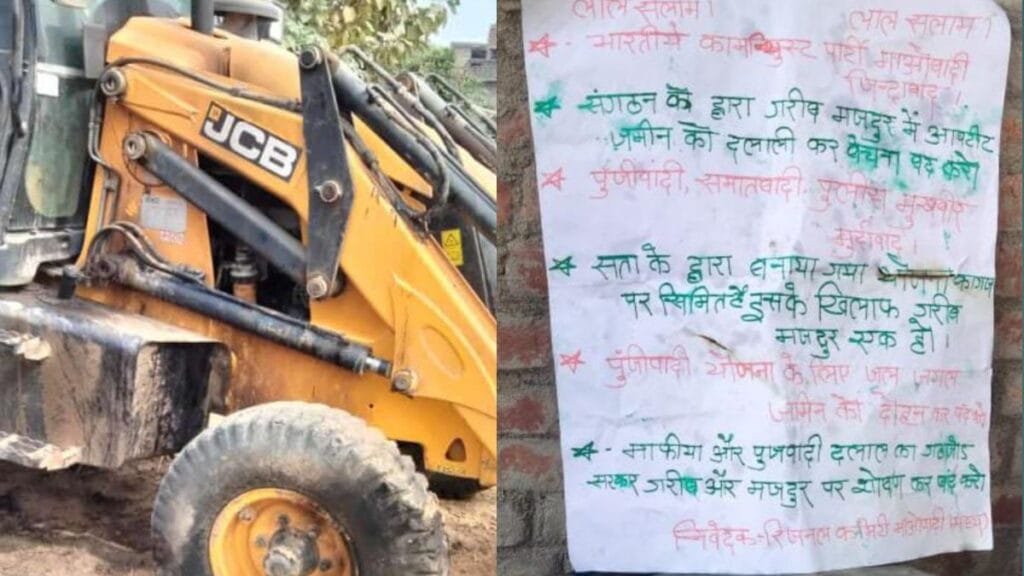 JCB
लाल सलाम।
लाल सलाम।
भारतीये कामन्युस्ट पार्टी माओवादी
जिन्दावाद।
संगठन के द्वारा गरीब मजदुर में आवंटीट
जमीन को दलाली कर बेचना बंद करो
पुंजीवादी, समातवादी, पुलीस मुखवीर
मुर्दावाद।
सता के द्वारा बनाया गया योजना कागज
पर सिमित है इसके खिलाफ गरीब
मजदुर एक हो।
पुंजीवादी योजना के लिए जल जंगल
जमिन को दोहन कर बंद करो
माफीया और पुजवादी दलाल का गठजोड़
सरकार गरीब और मजदुर पर शोषण कर बंद करो
निवेदक:- रिजनल कमिटी माओवादी